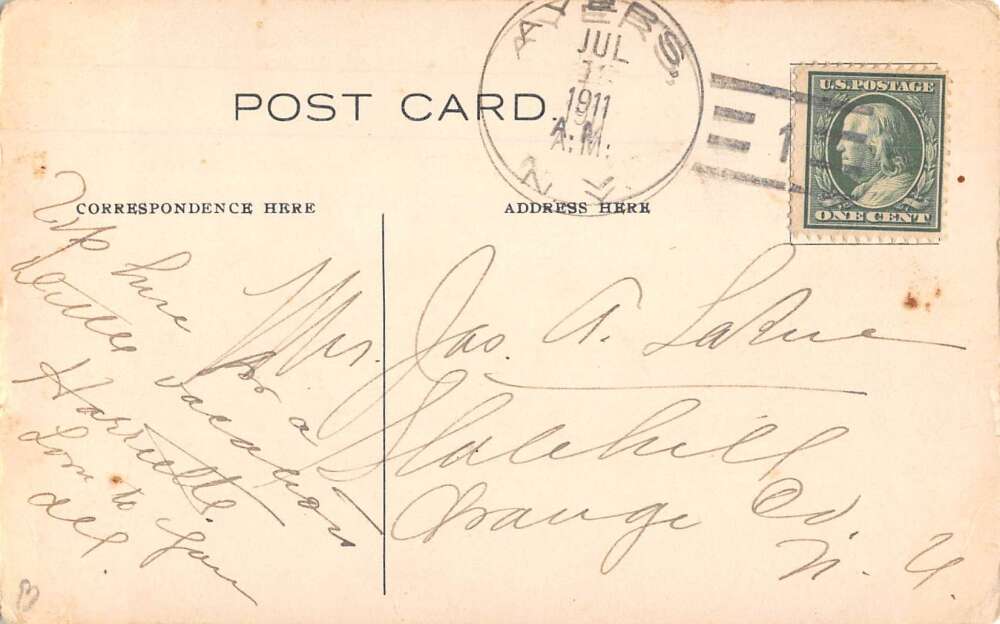 POST CARD.
AYERS.
JUL
1911
A.M.
N Y
1
U.S.POSTAGE
ONE CENT
CORRESPONDENCE HERE
ADDRESS HERE
Up here
for a
vacation
Harriette.
Love to you
all.
Mrs. Jas. A. LaRue
Slatehill
Orange Co.
N. Y.